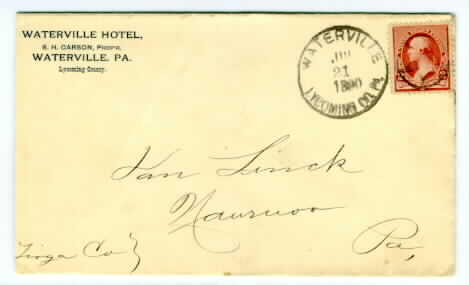 WATERVILLE HOTEL,
S. H. CARSON, PROP'R,
WATERVILLE, PA.
Lycoming County.
WATERVILLE
21
1890
LYCOMING CO. PA.
Van Linck
Pa,
Tioga Co